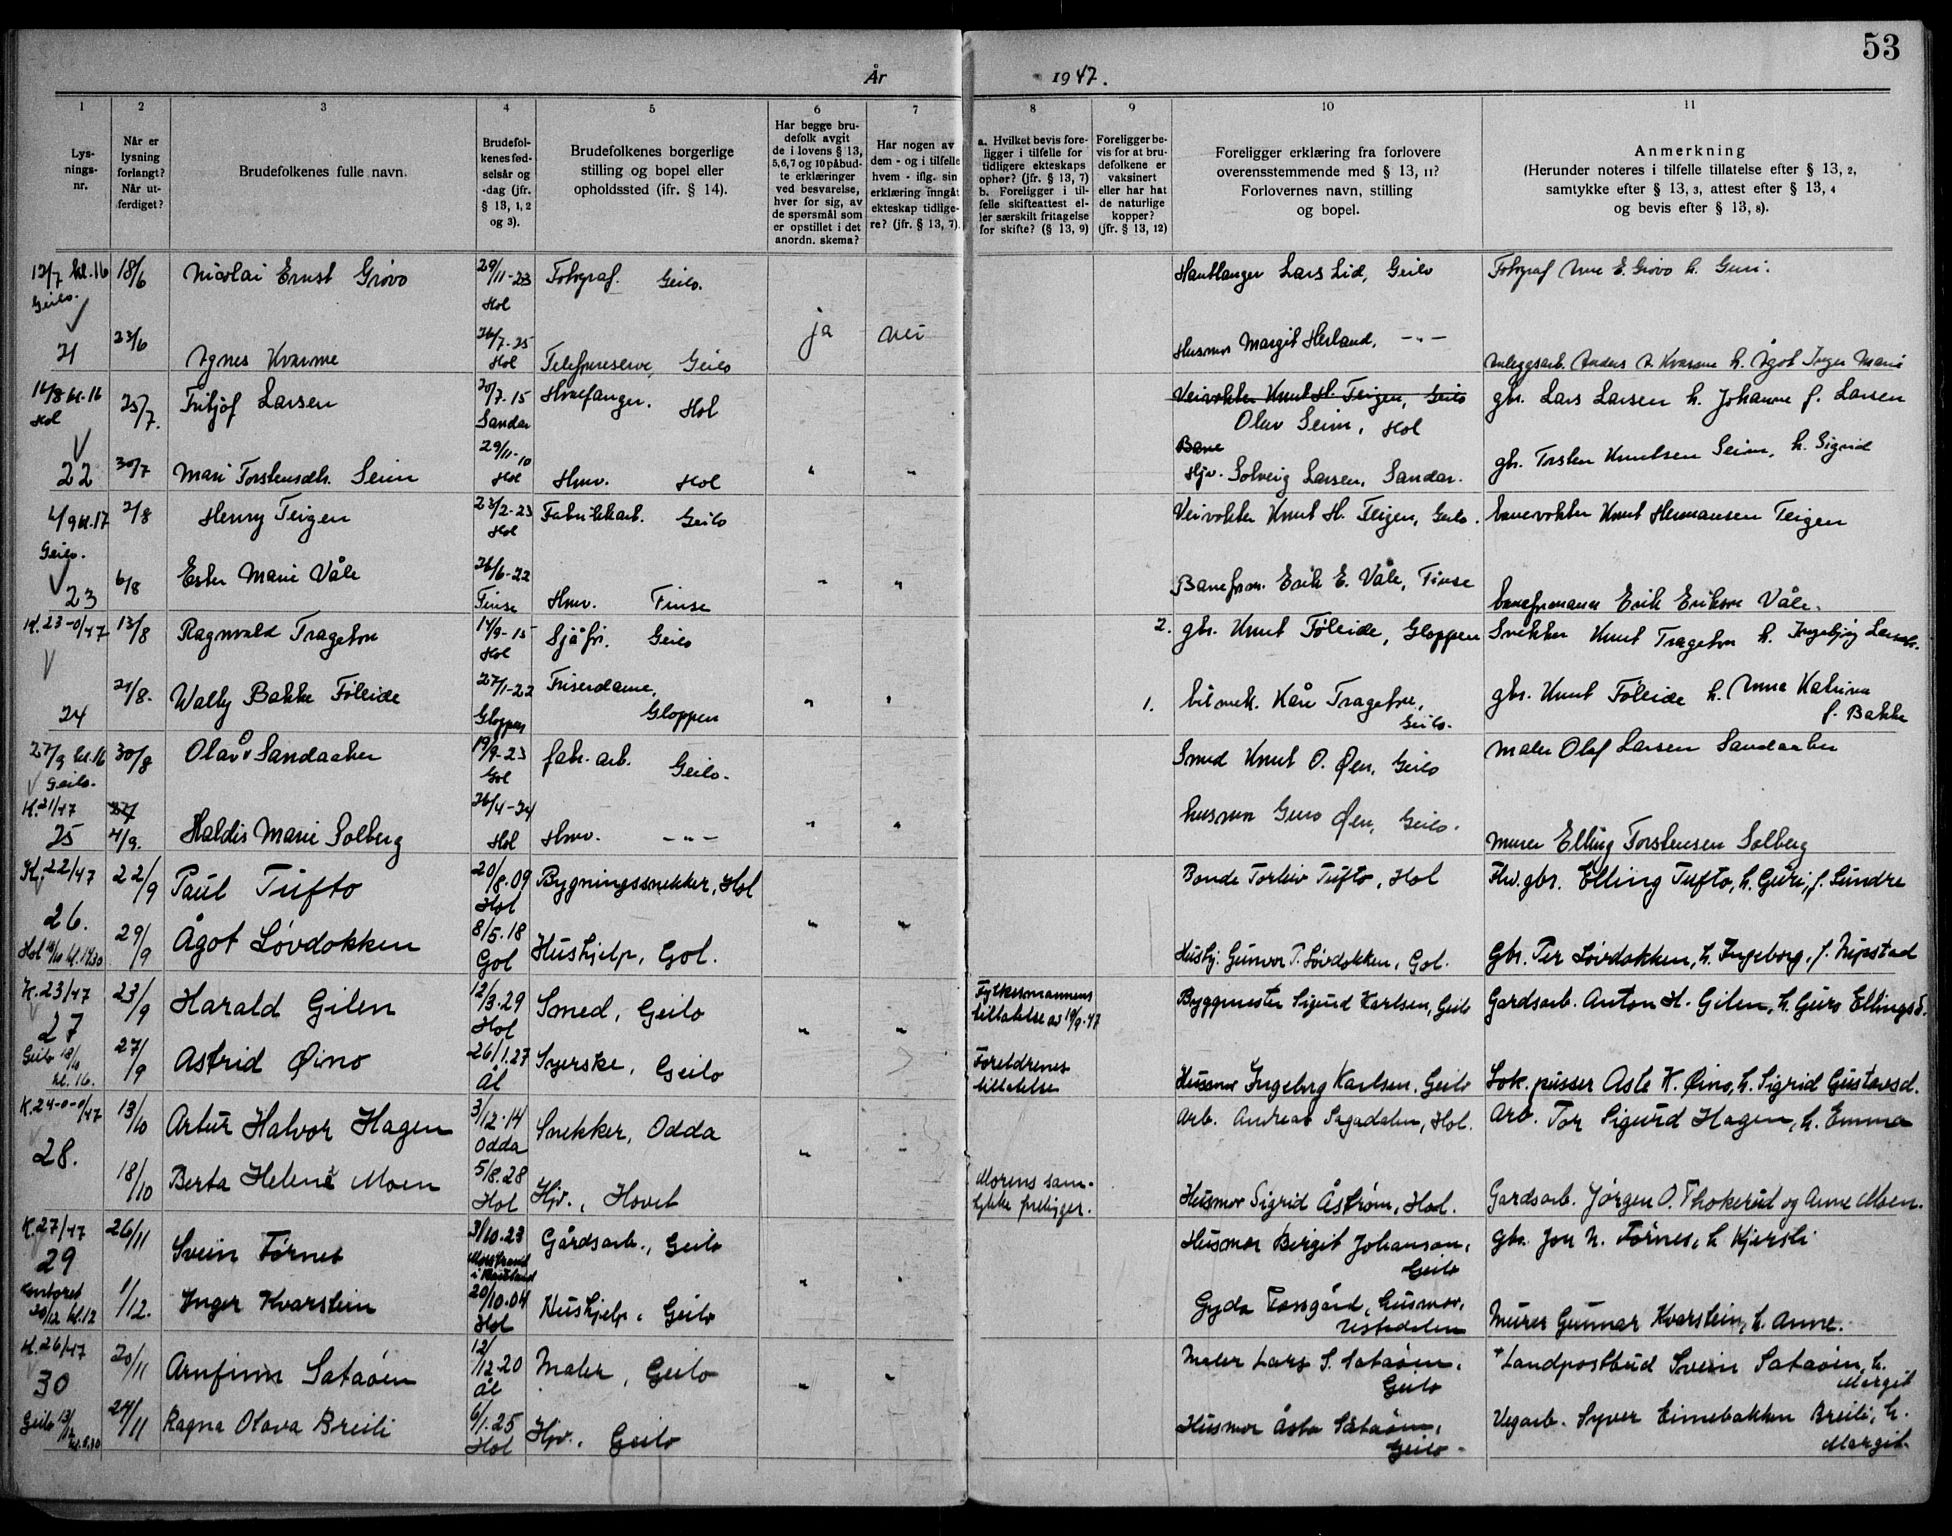 53
År 1947.
1 2 3 4 5 6 7 8 9 10 11
Lys-
nings-
nr.
Når er
lysning
forlangt?
Når ut-
ferdiget?
Brudefolkenes fulle navn.
Brudefol-
kenes fød-
selsår og
-dag (jfr.
§ 13, 1, 2
og 3).
Brudefolkenes borgerlige
stilling og bopel eller
opholdssted (jfr. § 14).
Har begge bru-
defolk avgit
de i lovens § 13,
5,6,7 og 10 påbud-
te erklæringer
ved besvarelse,
hver for sig, av
de spørsmål som
er opstillet i det
anordn. skema?
Har nogen av
dem - og i tilfelle
hvem - iflg. sin
erklæring inngåt
ekteskap tidlige-
re? (jfr. § 13, 7).
a. Hvilket bevis fore-
ligger i tilfelle for
tidligere ekteskaps
ophør? (jfr. § 13, 7)
b. Foreligger i til-
felle skifteattest el-
ler særskilt fritagelse
for skifte? (§ 13, 9)
Foreligger be-
vis for at bru-
defolkene er
vaksinert
eller har hat
de naturlige
kopper?
(jfr. § 13, 12)
Foreligger erklæring fra forlovere
overensstemmende med § 13, 11?
Forlovernes navn, stilling
og bopel.
Anmerkning
(Herunder noteres i tilfelle tillatelse efter § 13, 2,
samtykke efter § 13, 3, attest efter § 13, 4
og bevis efter § 13, 8).
12/7 kl. 16 18/6 Nicolai Ernst Grøvo 29/11-23 Fotograf. Geilo. Lars Lid, Geilo Fotograf Arne E. Grøvo h. Guri.
Geilo. Hol
ja nei
21 23/6 Agnes Kvarme 26/7-25 Hol Geilo Husmor Margit Herland, -"- Anleggsarb. Anders A. Kvarme h. Ågot Inger Marie
16/8 kl. 16 25/7. Fritjof Larsen 20/7-15 Hvalfanger. Hol Veivokter Knut H. Teigen, Geilo gbr. Lars Larsen h. Johanne f. Larsen
Hol Sandar Olav Seim, Hol
22 30/7 Mari Torstensdtr. Seim 29/11-10 Hol Hmv. Hol " " Hjv. Solveig Larsen, Sandar. gbr. Torsten Knutsen Seim, h. Sigrid
6/9 kl. 17 2/8 Henry Teigen 23/2-23 Hol Fabrikkarb. Geilo Veivokter Knut H. Teigen, Geilo. banevokter Knut Hermansen Teigen
Geilo.
23 6/8 Ester Marie Våle 26/6-22 Finse Hmv. Finse " " Baneform. Erik E. Våle, Finse baneformann Erik Erikson Våle.
K. 23-0/47 13/8 Ragnvald Tragethon 14/9-15 Hol Sjåfør. Geilo 2. gbr. Knut Føleide, Gloppen Snekker Knut Tragethon h. Ingebjørg
24 21/8. Wally Bakke Føleide 27/1-22 Gloppen Friserdame, Gloppen " " 1. bilmek. Kåre Tragethon, Geilo. gbr. Knut Føleide h. Anna Katrina
f. Bakke
27/9 kl. 16 30/8 Olav Å Sandaaker 19/9-23 Gol fabr. arb. Geilo. Smed Knut O. Øen, Geilo Maler Olaf Larsen Sandaaker
Geilo.
K. 21/47
25 4/9. Haldis Marie Solberg 26/4-24 Hol Hmv. -"- " " husmor Guro Øen, Geilo. Murer Elling Torstensen Solberg
K. 22/47 22/9 Paul Tufto 20/8.09 Hol Bygningssnekker, Hol Bonde Torleiv Tufto, Hol Fhv. gbr. Elling Tufto, h. Guri, f. Sundre
26.
29/9 Ågot Løvdokken 8/5.18 Gol Hushjelp, Gol. " " Hushj. Gunvor P. Løvdokken, Gol. Gbr. Per Løvdokken, h. Ingeborg, f. Nipstad
K. 23/47 23/9 Harald Gilen 12/3.29 Hol Smed, Geilo " " Fylkesmannens
tillatelse av 19/9-47 Byggmester Sigurd Karlsen, Geilo Gardsarb. Anton H. Gilen, h. Guro Ellingsd.
27
Geilo 18/10 kl. 16. 27/9 Astrid Øino 26/1.27 Ål Syerske, Geilo Foreldrenes
tillatelse Husmor Ingeborg Karlsen, Geilo Lok. pusser Asle K. Øino, h. Sigrid Gustavsd.
K. 24-0-0/47 13/10 Artur Halvor Hagen 3/12.14 Odda Snekker, Odda " " Arb. Andreas Hol. Arb. Tor Sigurd Hagen, h. Emma
28.
18/10 Berta Helene Moen 5/8.28 Hol Hjv., Hovet Morens sam-
tykke foreligger. Husmor Sigrid Åstrøm, Hol. Gardsarb. Jørgen O. Thokerud og Anne Moen.
K. 27/47 26/11 Svein Førnes 3/10.23 Gårdsarb., Geilo Husmor Birgit Johanson, Geilo gbr. Jon N. Førnes, h. Kjersti
29
Kontoret 20/12 kl. 12 1/12. Inger Kvarstein 20/10.04 Hol Hushjelp, Geilo " " Gyda Fossgård, husmor, Ustedalen Murer Gunnar Kvarstein, h. Anne.
K. 26/47 20/11 Arnfinn Sataøen 12/12.20 Ål Maler, Geilo " " Maler Lars S. Sataøen, Geilo Landpostbud Svein Sataøen, h. Margit
30
Geilo 13/12 24/11 Ragna Olava Breili 6/1.25 Hol Hjv., Geilo Husmor Åsta Sataøen, Geilo Vegarb. Syver Eimebakken Breili, h. Margit